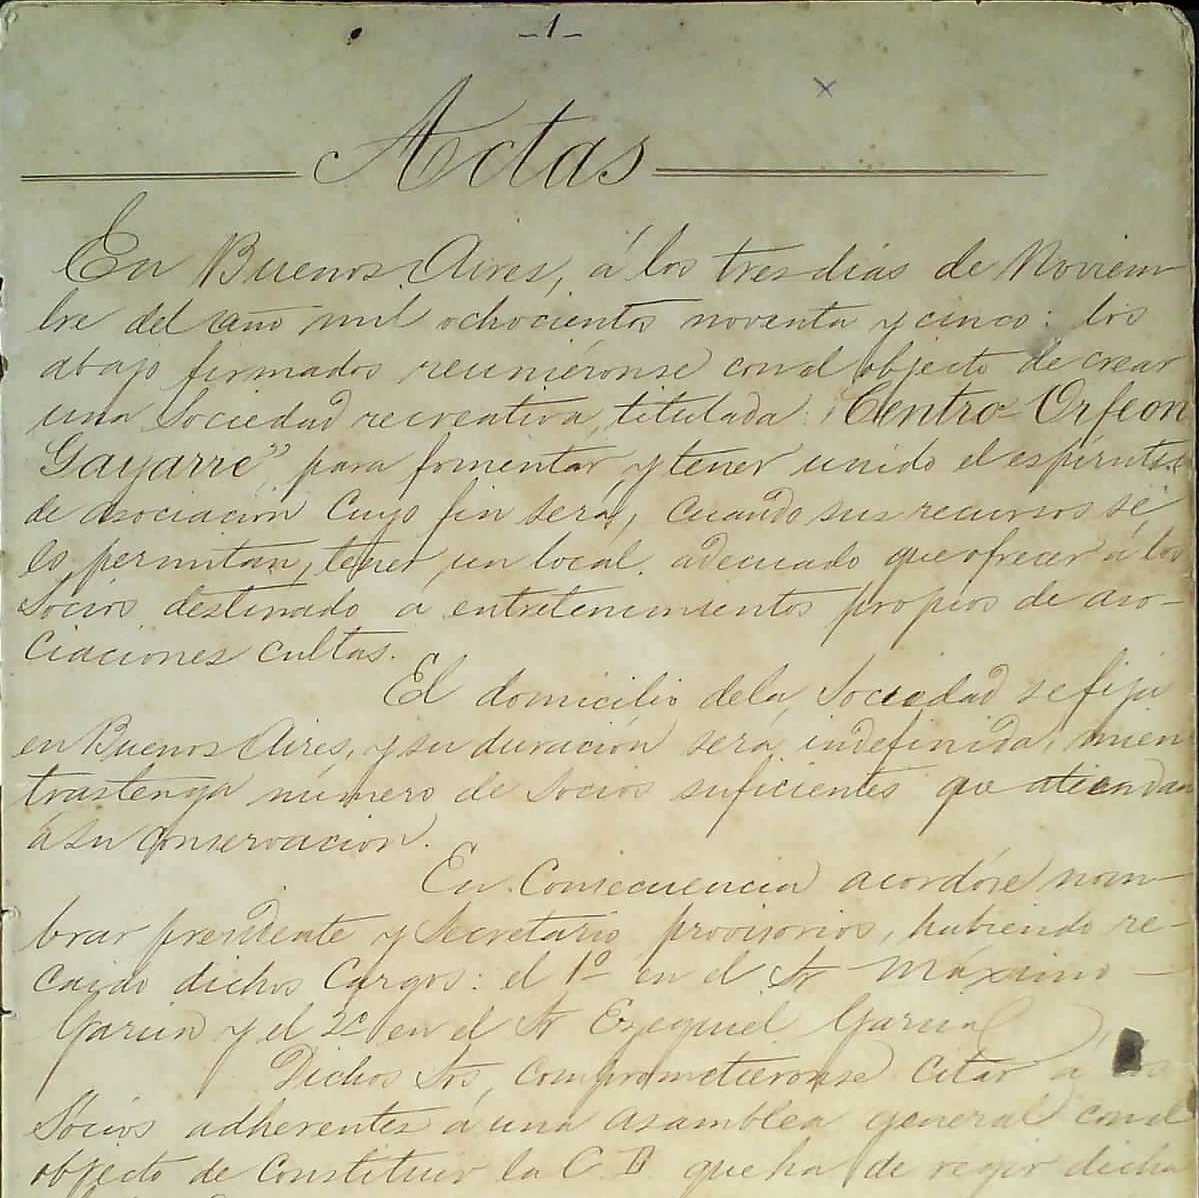 -1-
Actas
En Buenos Aires, á los tres dias de Noviem
bre del año mil ochocientos noventa y cinco: los
abajo firmados reuniéronse con el objecto de crear
una Sociedad recreativa, titulada: "Centro Orfeon
Gayarre", para fomentar y tener unido el espíritu
de asociación cuyo fin será, cuando sus recursos se
lo permitan, tener un local adecuado que ofrecer á los
Socios destinado a entretenimientos propios de aso-
ciaciones cultas.
El domicilio de la Sociedad se fija
en Buenos Aires, y su duración será indefinida, mien
tras tenga número de Socios suficientes que atiendan
á su conservacion.
En Consecuencia acordóse nom-
brar presidente y Secretario provisorios, habiendo re-
caido dichos Cargos: el 1º en el Sr Máximo -
Garcia y el 2º en el Sr Ezequiel Garcia
Dichos Srs, comprometieronse citar á los
Sócios adherentes á una asamblea general con el
objecto de Constituir la C. D que ha de regir dicha